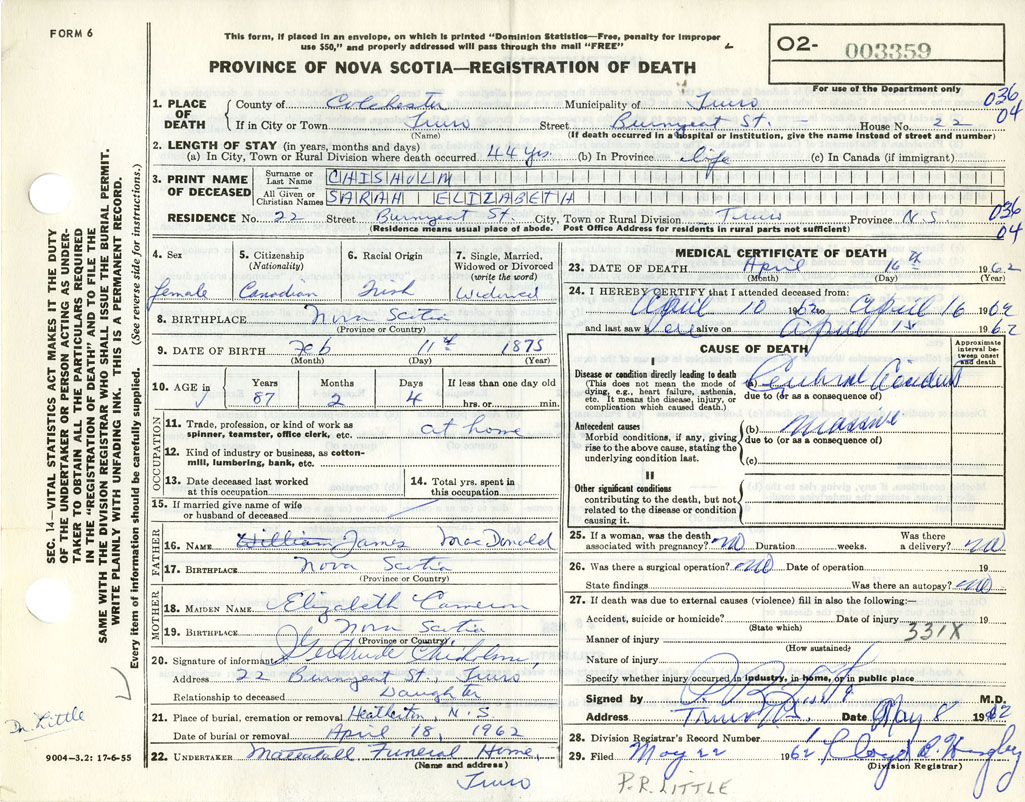 FORM 6
This form, if placed in an envelope, on which is printed "Dominion Statistics—Free, penalty for improper
use $50," and properly addressed will pass through the mail "FREE"
PROVINCE OF NOVA SCOTIA—REGISTRATION OF DEATH
O2- 003359
For use of the Department only
036
04
1. PLACE OF DEATH
County of Colchester Municipality of Truro
If in City or Town Truro Street Burnyeat St. - House No. 22
(Name) (If death occurred in a hospital or institution, give the name instead of street and number)
2. LENGTH OF STAY (in years, months and days)
(a) In City, Town or Rural Division where death occurred 44 yrs. (b) In Province life (c) In Canada (if immigrant)
3. PRINT NAME OF DECEASED
Surname or Last Name CHISHOLM
All Given or Christian Names SARAH ELIZABETH
RESIDENCE No. 22 Street Burnyeat St. City, Town or Rural Division Truro Province N.S.
(Residence means usual place of abode. Post Office Address for residents in rural parts not sufficient)
036
04
4. Sex
female
5. Citizenship (Nationality)
Canadian
6. Racial Origin
Irish
7. Single, Married, Widowed or Divorced (write the word)
Widowed
8. BIRTHPLACE Nova Scotia
(Province or Country)
9. DATE OF BIRTH Feb 11th 1875
(Month) (Day) (Year)
10. AGE in
Years Months Days If less than one day old
87 2 4 hrs. or min.
OCCUPATION
11. Trade, profession, or kind of work as spinner, teamster, office clerk, etc. at home
12. Kind of industry or business, as cotton-mill, lumbering, bank, etc.
13. Date deceased last worked at this occupation
14. Total yrs. spent in this occupation
15. If married give name of wife or husband of deceased
FATHER
16. NAME William James MacDonald
17. BIRTHPLACE Nova Scotia
(Province or Country)
MOTHER
18. MAIDEN NAME Elizabeth Cameron
19. BIRTHPLACE Nova Scotia
(Province or Country)
20. Signature of informant Gertrude Chisholm,
Address 22 Burnyeat St., Truro
Relationship to deceased Daughter
21. Place of burial, cremation or removal Heatherton, N.S
Date of burial or removal April 18, 1962
22. UNDERTAKER Mattatall Funeral Home,
(Name and address)
Truro
MEDICAL CERTIFICATE OF DEATH
23. DATE OF DEATH April 16th 1962
(Month) (Day) (Year)
24. I HEREBY CERTIFY that I attended deceased from:
April 10 1962 to April 16 1962
and last saw her alive on April 1962
CAUSE OF DEATH
Approximate interval between onset and death
I
Disease or condition directly leading to death
(This does not mean the mode of dying, e.g., heart failure, asthenia, etc. It means the disease, injury, or complication which caused death.)
(a) Cerebral Accident
due to (or as a consequence of)
Antecedent causes
Morbid conditions, if any, giving rise to the above cause, stating the underlying condition last.
(b) massive
due to (or as a consequence of)
(c)
II
Other significant conditions
contributing to the death, but not related to the disease or condition causing it.
25. If a woman, was the death associated with pregnancy? no Duration weeks. Was there a delivery? no
26. Was there a surgical operation? no Date of operation 19
State findings Was there an autopsy? no
27. If death was due to external causes (violence) fill in also the following:—
Accident, suicide or homicide? Date of injury 19
(State which)
331X
Manner of injury
(How sustained)
Nature of injury
Specify whether injury occurred in industry, in home, or in public place
Signed by M.D.
Address Truro N.S. Date May 8 1962
28. Division Registrar's Record Number
29. Filed May 22 1962
(Division Registrar)
P.R. LITTLE
SEC. 14—VITAL STATISTICS ACT MAKES IT THE DUTY
OF THE UNDERTAKER OR PERSON ACTING AS UNDER-
TAKER TO OBTAIN ALL THE PARTICULARS REQUIRED
IN THE "REGISTRATION OF DEATH" AND TO FILE THE
SAME WITH THE DIVISION REGISTRAR WHO SHALL ISSUE THE BURIAL PERMIT.
WRITE PLAINLY WITH UNFADING INK. THIS IS A PERMANENT RECORD.
Every item of information should be carefully supplied. (See reverse side for instructions.)
Dr. Little
9004—3.2: 17-6-55